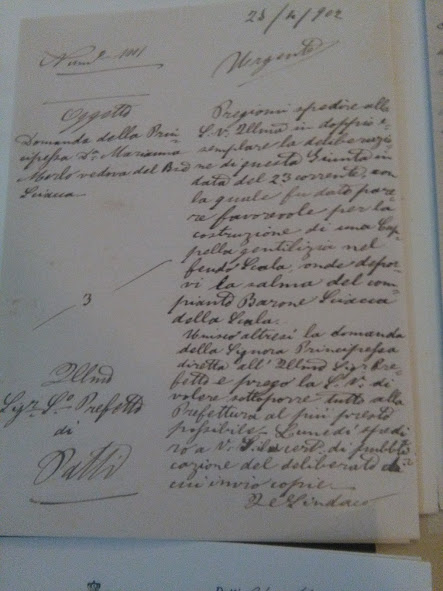 24/4/902
Num.º 1111
Urgente
Oggetto
Domanda della Prin-
cipessa D.ª Marianna
Merlo vedova del B.ne
Sciacca
3
Ill.mo
Sig.r S.o Prefetto
di
Patti
Pregiomi spedire alla
S. V. Ill.ma in doppio e-
semplare la deliberazio-
ne di questa Giunta in
data del 23 corrente, con
la quale fu dato pare-
re favorevole per la
costruzione di una Cap-
pella gentilizia nel
feudo Scala, onde depor-
vi la salma del com-
pianto Barone Sciacca
della Scala.
Unisco altresì la domanda
della Signora Principessa
diretta all'Ill.mo Sig.r Pre-
fetto e prego la S. V. di
volere sottoporre tutto alla
Prefettura al più presto
possibile. Lunedì spedi-
rò a V. S. la cert. di pubbli-
cazione del deliberato da
cui invio copie.
Il Sindaco